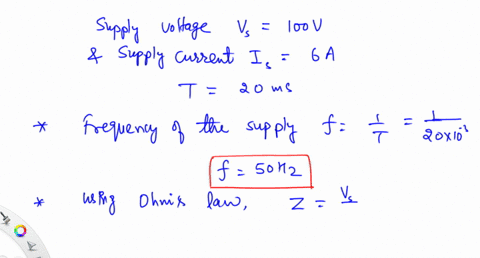 Supply voltage Vs = 100V
& Supply current Is = 6A
T = 20 ms
* Frequency of the supply f = 1/T = 1/20×10⁻³
f = 50Hz
* using Ohm's law, Z = Vs/